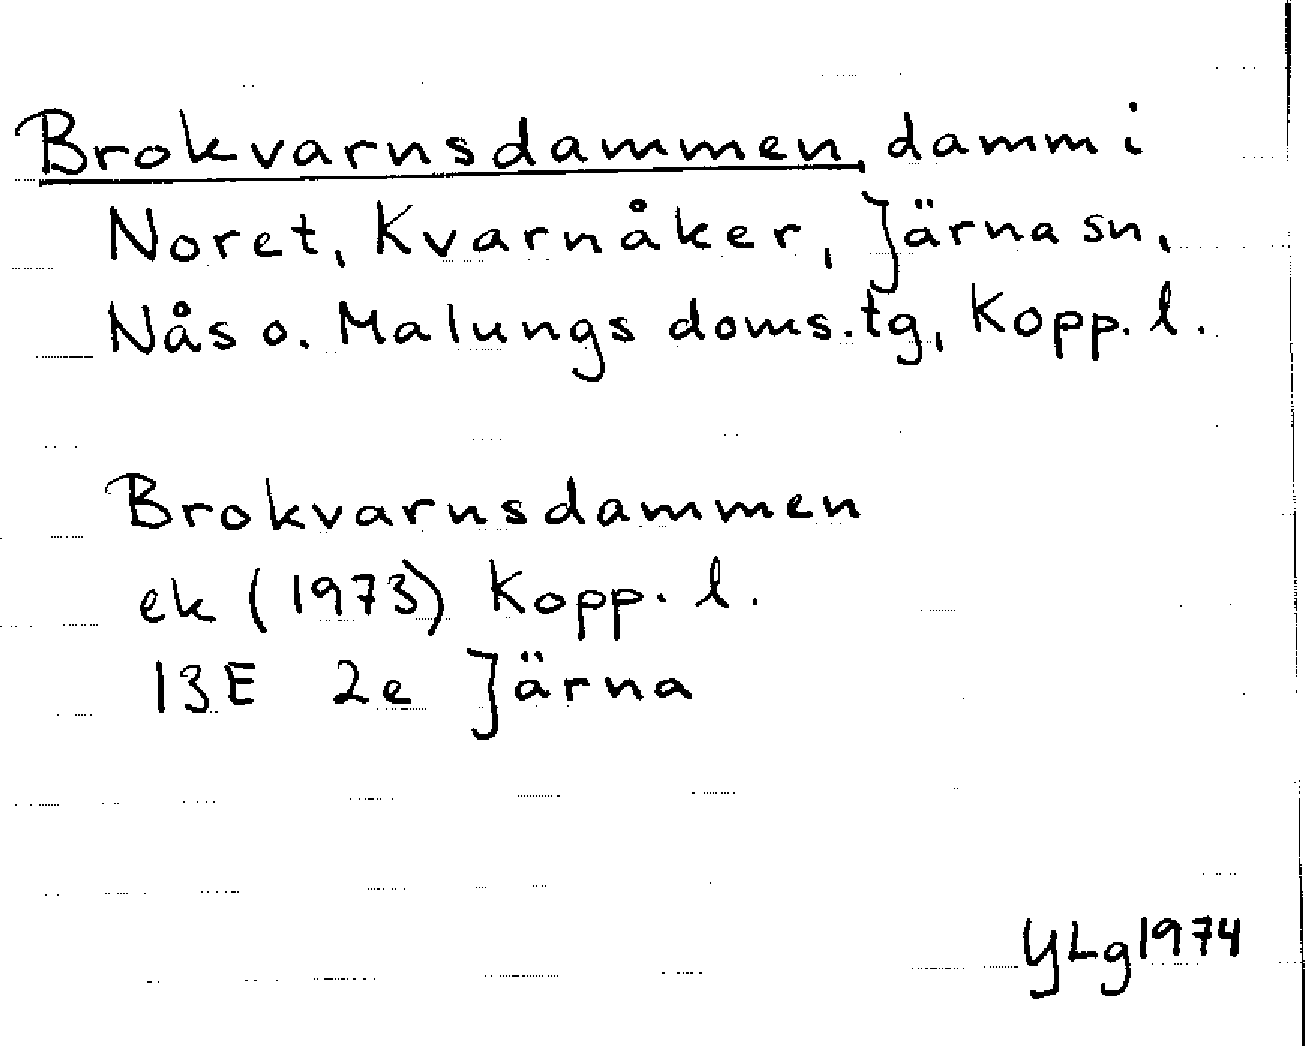 Brokvarnsdammen, damm i
Noret, Kvarnåker, Järna sn,
Nås o. Malungs doms.tg, Kopp. l.
Brokvarnsdammen
ek (1973) Kopp. l.
13E 2e Järna
YLg 1974